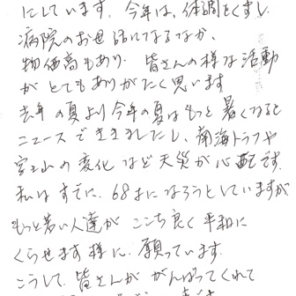 にしています。今年は、体調をくずし
病院のお世話になるなか、
物価高もあり、皆さんの様な活動
がとてもありがたく思います
去年の夏より今年の夏はもっと暑くなると
ニュースでききましたし、南海トラフや
富士山の変化など天災が心配です。
私はすでに、68才になろうとしていますが
もっと若い人達がここち良く平和に
くらせます様に、願っています。
こうして、皆さんががんばってくれて